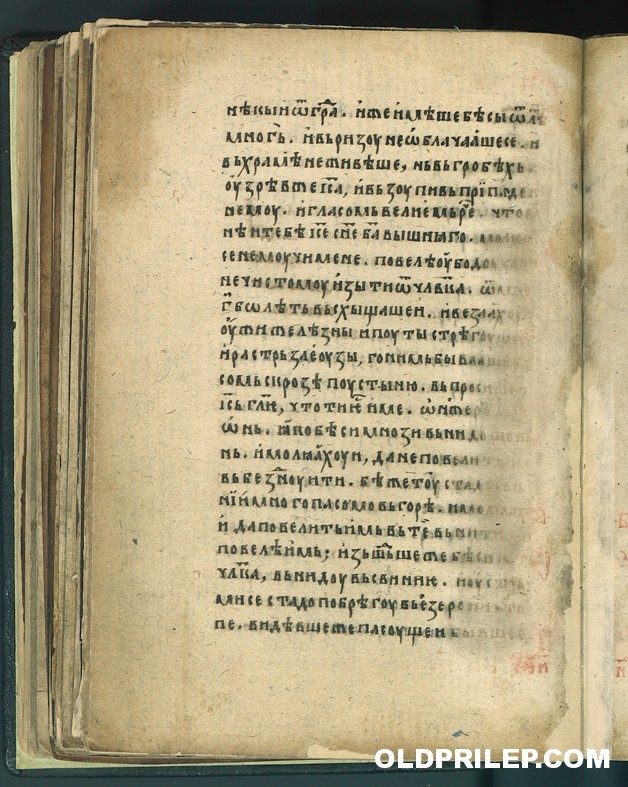 нѣкыи ѿ гра҇. иже имѣше бѣсы ѿ лѣ
многъ. и вь ризоу не ѡблачаашесе. и
вь храмѣ не живѣше, нь вь гробѣхь.
оузрѣв же іс҃а, и вьзоупивь прїп
немоу. и гласомь велиемь ре҇. что
нѣ и тебѣ іс҃е сн҃е ба҃ вышняго. мол
се не моучи мене. повелѣ оубо доу
нечистомоу изыти ѿ чл҃вка. ѿ
г҃ бѡ лѣть вьсхыщашеи. и везаах
оужи желѣзны и поуты стрѣго
и растрьзае оузы, гонимь быва
сомь скрозѣ поустыню. вьпрос
іс҃ь гл҃и, что ти к҇ име. ѡн же ре
ѡнь. ꙗко бѣси мнози вьнид
нь. и молꙗхоу и, да не повели
вь безноу ити. бѣ же тоу стад
нїи много пасомо вь горѣ. и мо
и да повелить имь вь те҇ вьнити
повелѣ имь; изьшьше же бѣси
чл҃ка, вьнидоу вь свиние. и оустрь
ми се стадо по брѣгоу вь езеро
пе. видѣвше же пасоущеи бывшее
OLDPRILEP.COM